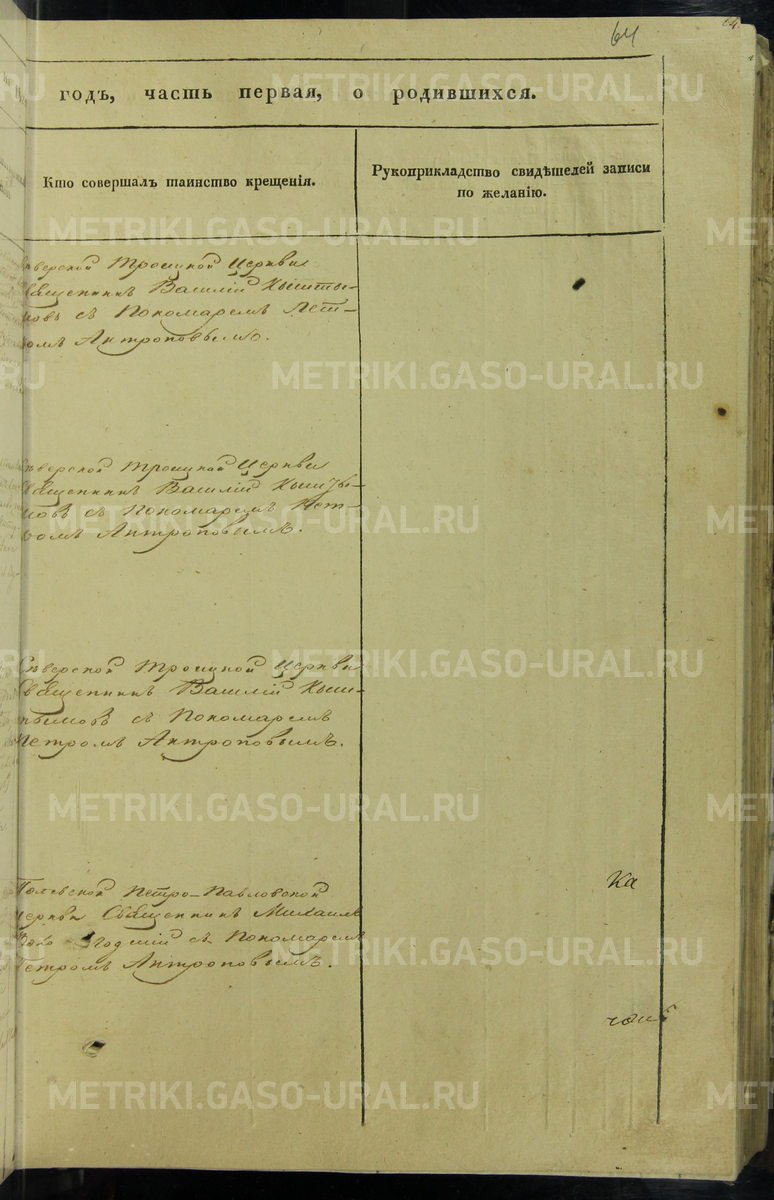 64
годъ, часть первая, о родившихся.
Кто совершалъ таинство крещенія.
Рукоприкладство свидѣтелей записи
по желанію.
Сѣверской Троицкой Церкви
Священникъ Василій Кышты-
мовъ съ Пономаремъ Пет-
ромъ Антроповымъ.
Сѣверской Троицкой Церкви
Священникъ Василій Кышты-
мовъ съ Пономаремъ Пет-
ромъ Антроповымъ.
Сѣверской Троицкой Церкви
Священникъ Василій Кыш-
тымовъ съ Пономаремъ
Петромъ Антроповымъ.
Полевской Петро-Павловской
Церкви Священникъ Михаилъ
съ Пономаремъ
Петромъ Антроповымъ.
Ка
METRIKI.GASO-URAL.RU